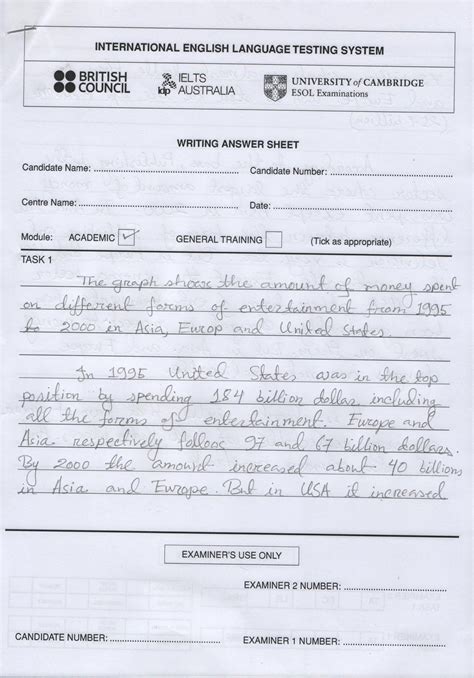 INTERNATIONAL ENGLISH LANGUAGE TESTING SYSTEM
BRITISH COUNCIL
idp IELTS AUSTRALIA
UNIVERSITY of CAMBRIDGE
ESOL Examinations
WRITING ANSWER SHEET
Candidate Name: Candidate Number:
Centre Name: Date:
Module: ACADEMIC ✓ GENERAL TRAINING (Tick as appropriate)
TASK 1
The graph shows the amount of money spent
on different forms of entertainment from 1995
to 2000 in Asia, Europ and United States.
In 1995 United States was in the top
position by spending 184 billion dollar including
all the forms of entertainment. Europe and
Asia respectively follows 97 and 67 billion dollars.
By 2000 the amount increased about 40 billions
in Asia and Europe. But in USA it increased
EXAMINER'S USE ONLY
EXAMINER 2 NUMBER:
CANDIDATE NUMBER: EXAMINER 1 NUMBER: